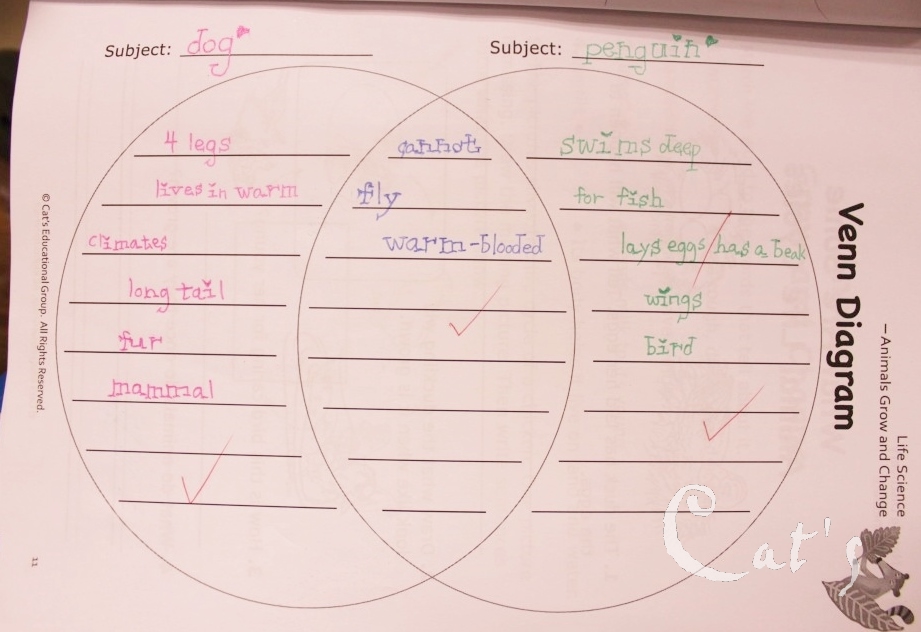 Subject: dog
Subject: penguin
4 legs
lives in warm
climates
long tail
fur
mammal
cannot
fly
warm-blooded
swims deep
for fish
lays eggs/has a beak
wings
bird
Venn Diagram
—Animals Grow and Change
Life Science
© Cat's Educational Group. All Rights Reserved.
11
Cat's